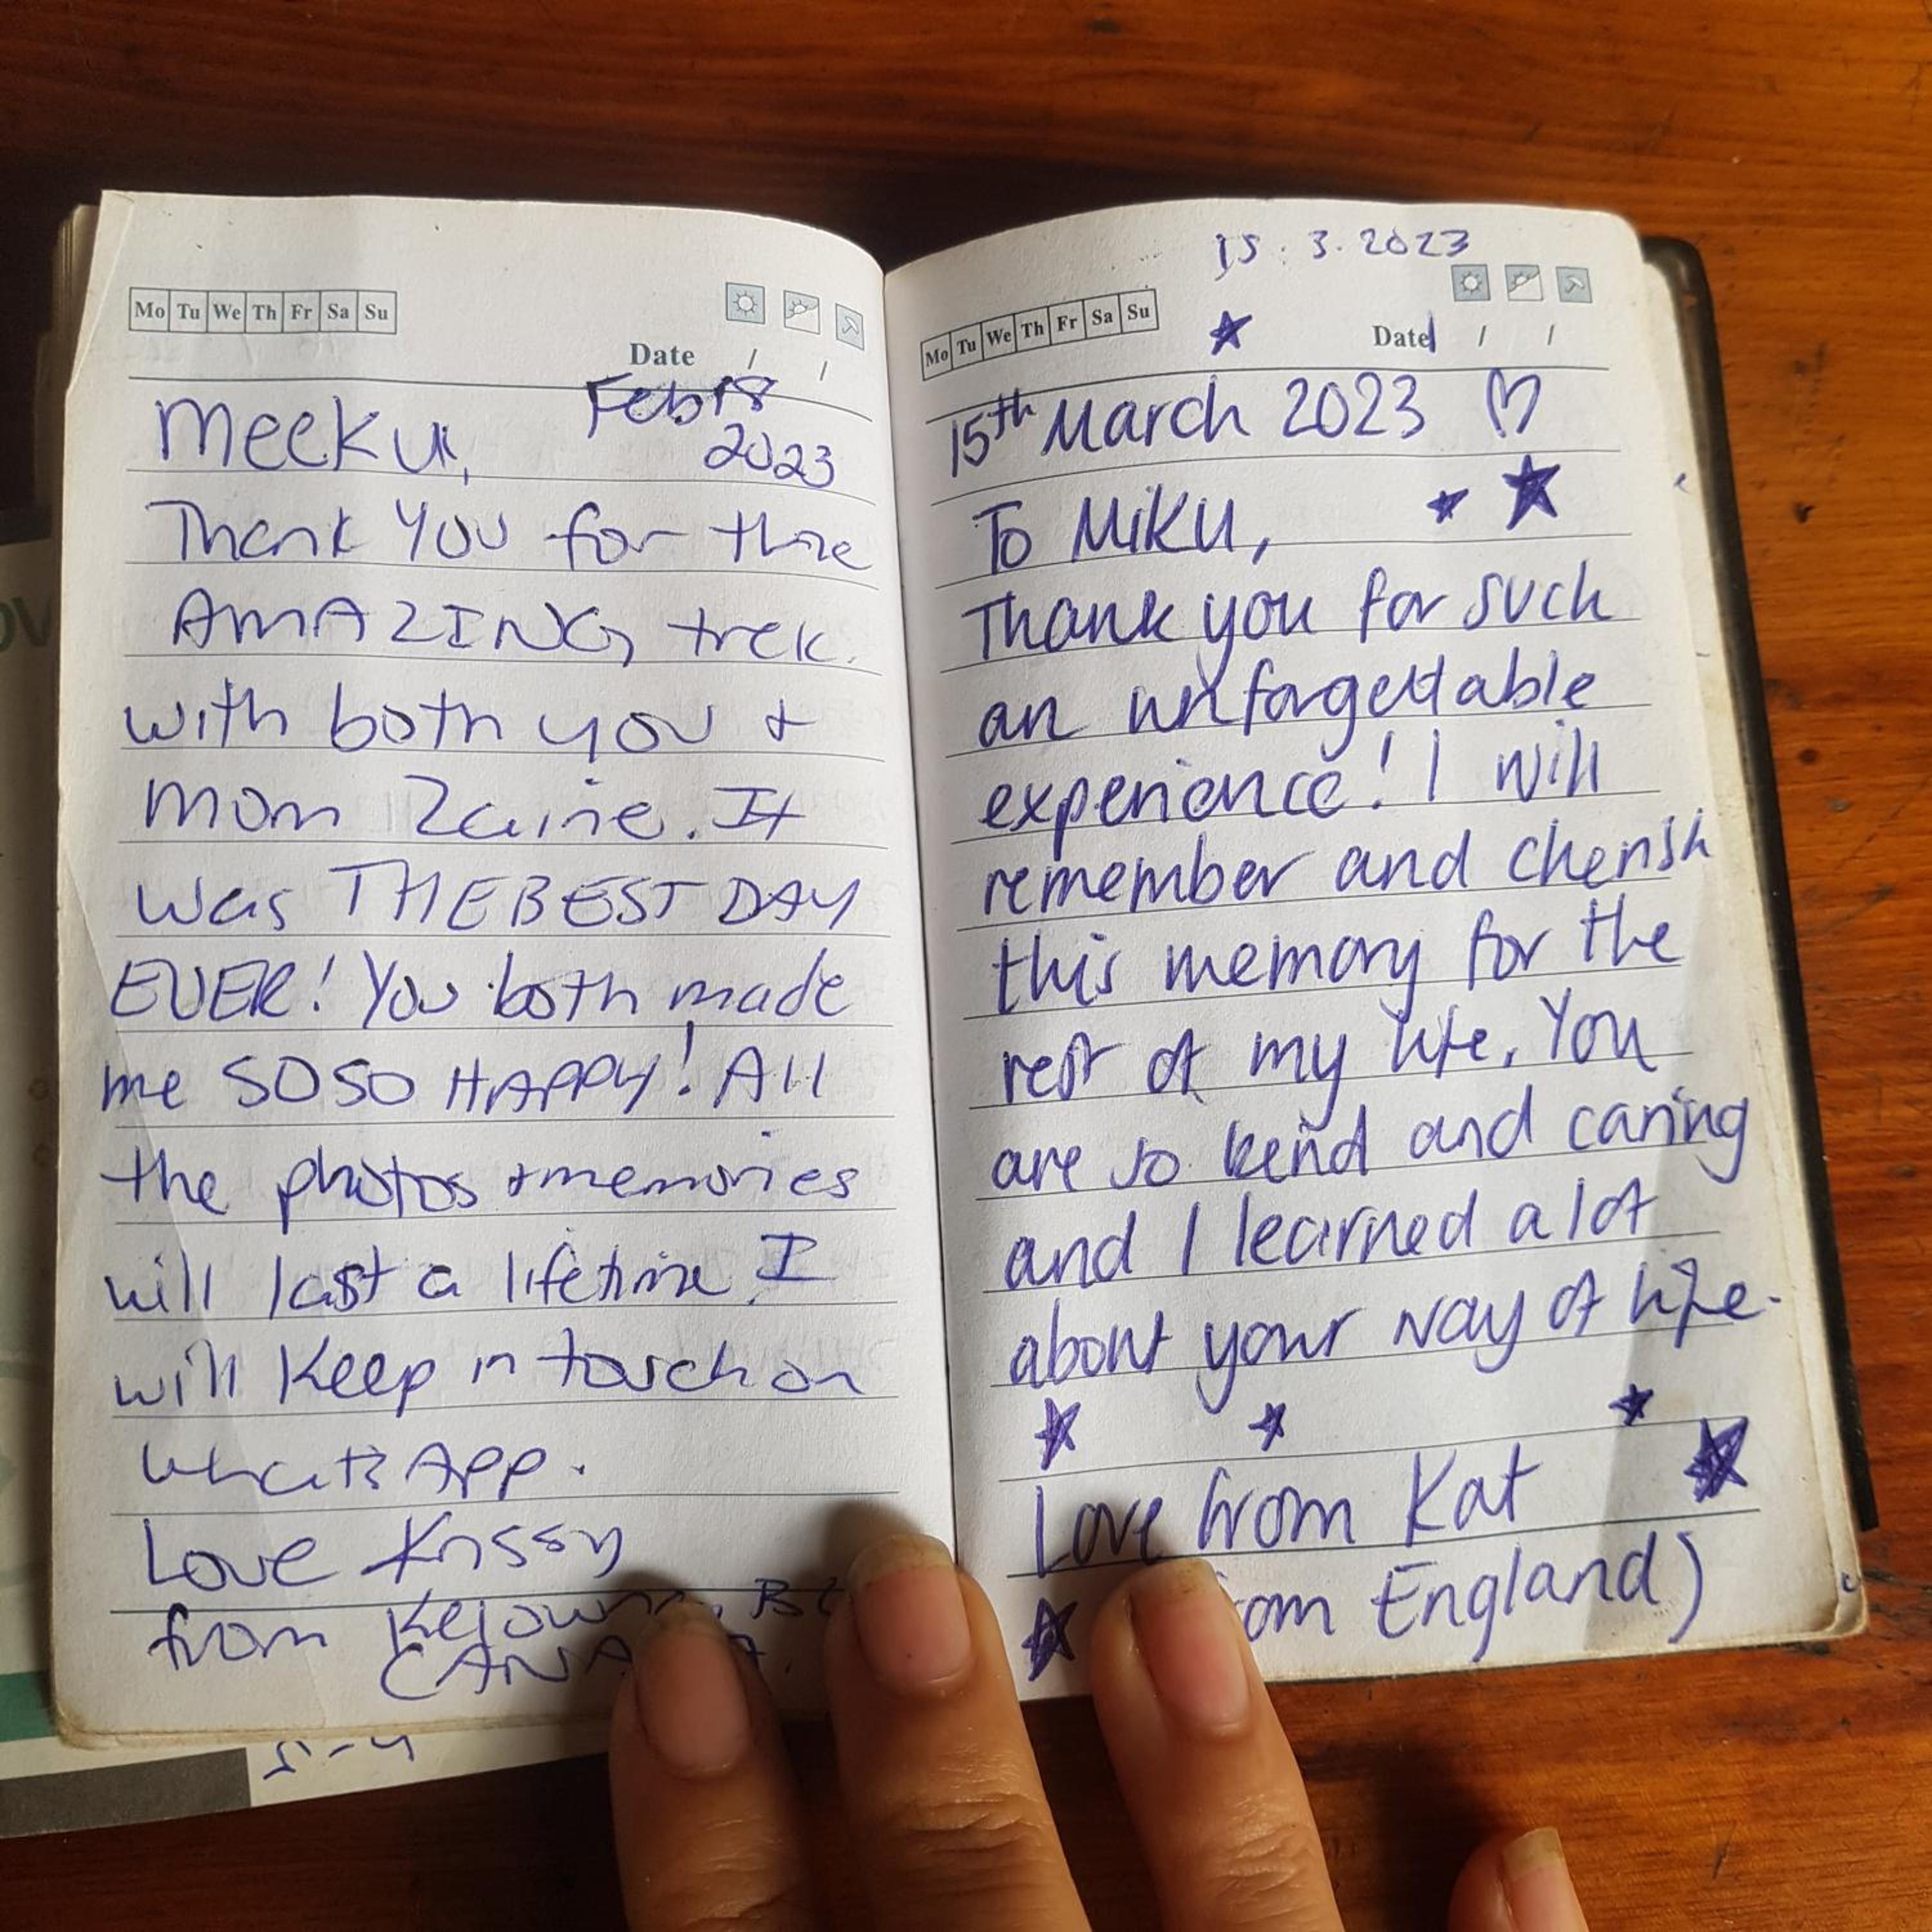 Mo Tu We Th Fr Sa Su
Date / /
Feb 18
Meeku, 2023
Thank You for thre
AMAZING trek.
with both you +
mom Zaine. It
was THE BEST DAY
EVER! You both made
me SO SO HAPPY! All
the photos + memories
will last a lifetime. I
will keep in touch on
WhatsApp.
Love Krissy
from Kelowna, BC
CANADA.
5-4
15.3.2023
Mo Tu We Th Fr Sa Su
Date / /
15th March 2023
To MiKU,
Thank you for such
an unforgettable
experience! I will
remember and cherish
this memory for the
rest of my life. You
are so kind and caring
and I learned a lot
about your way of life.
Love from Kat
England)